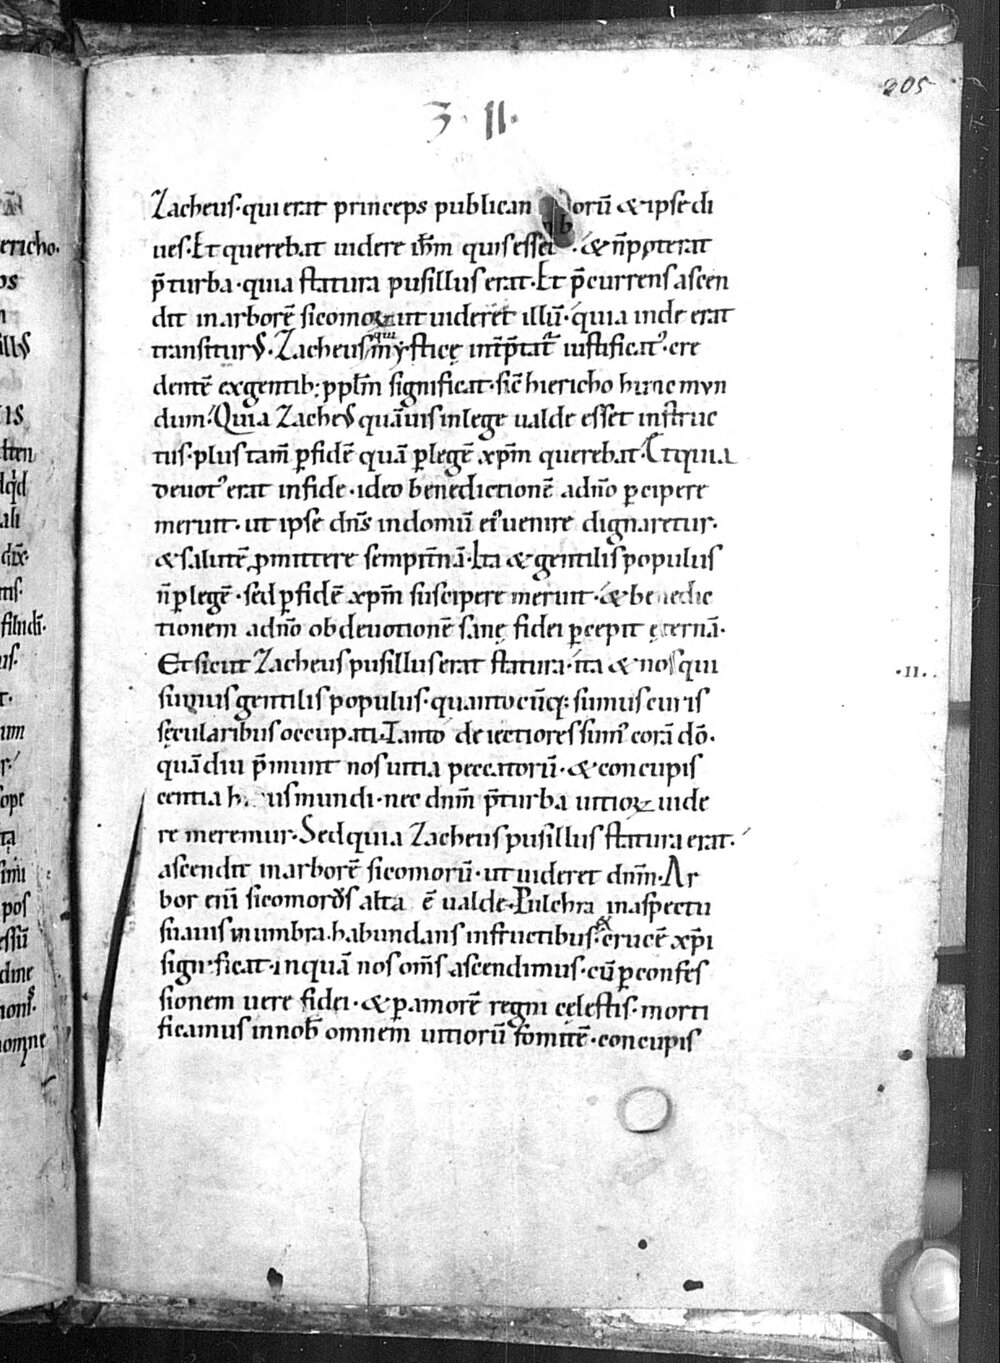 205
3 · II ·
Zacheus · qui erat princeps publican orū & ipse di
ues · Et querebat uidere ihm̄ quis esset · & n̄ poterat
p̄ turba · quia statura pusillus erat · Et p̄currens ascen
dit in arborē sicomoꝝ ut uideret illū · quia inde erat
transiturus · Zacheus qui mystice int̄p̄tat̄ iustificatꝰ · cre
dentē ex gentib; pplm̄ significat · sic̄ hiericho hunc mun
dum · Quia Zacheus quāuis in lege ualde esset instruc
tus · plus tam̄ p̱ fidē quā p̱ legē xp̄m querebat · Et quia
deuotꝰ erat in fide · ideo benedictionē a dn̄o p̱cipere
meruit · ut ipse dn̄s in domū eiꝰ uenire dignaretur ·
& salutē ꝓmittere sempit̄nā · Ita & gentilis populus
n̄ p̱ legē · sed p̱ fidē xp̄m suscipere meruit · & benedic
tionem a dn̄o ob deuotionē sanę fidei p̱cepit ęternā ·
Et sicut Zacheus pusillus erat statura · ita & nos qui
sumus gentilis populus · quanto cūq; sumus curis
sęcularibus occupati · Tanto deiectiores sumꝰ corā dō ·
quādiu p̄munt nos uitia peccatorū · & concupis
centia h us mundi · nec dnm̄ p̄ turba uitioꝝ uide
re meremur · Sed quia Zacheus pusillus statura erat ·
ascendit in arborē sicomorū · ut uideret dnm̄ · Ar
bor eni sicomorus alta ē ualde · Pulchra in aspectu
suauis in umbra · habundans in fructibus · & crucē xp̄i
significat · in quā nos om̄s ascendimus · cū p̱ confes
sionem uere fidei · & p̱ amorē regni cęlestis · morti
ficamus in nob̄ omnem uitiorū fomitē · concupis
· II ·